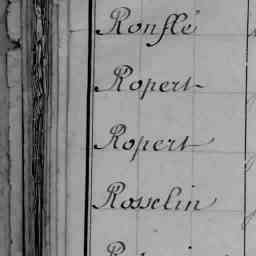 Ronflé
Ropert
Ropert
Rosselin